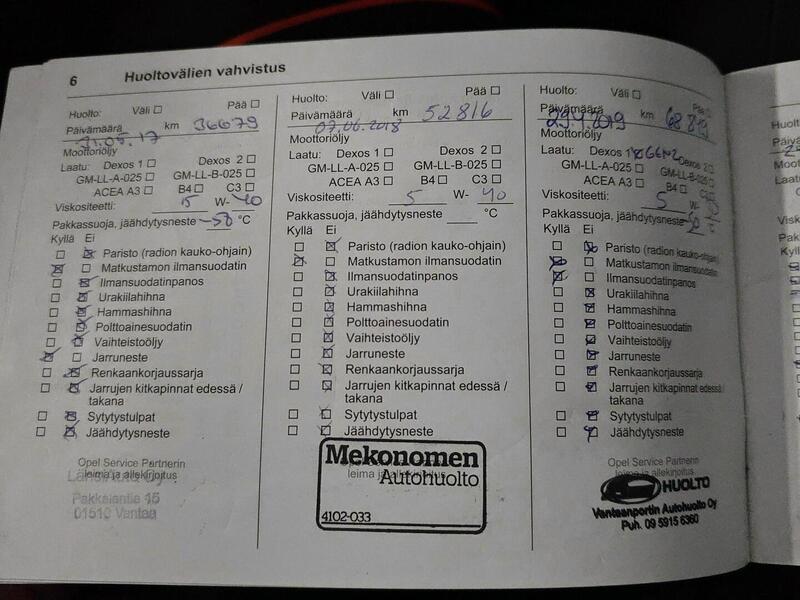 6 Huoltovälien vahvistus
Huolto: Väli Pää
Päivämäärä km 36679
31.05.17
Moottoriöljy
Laatu: Dexos 1 Dexos 2
GM-LL-A-025 GM-LL-B-025
ACEA A3 B4 C3
Viskositeetti: W- 40
Pakkassuoja, jäähdytysneste °C
Kyllä Ei
Paristo (radion kauko-ohjain)
Matkustamon ilmansuodatin
Ilmansuodatinpanos
Urakiilahihna
Hammashihna
Polttoainesuodatin
Vaihteistoöljy
Jarruneste
Renkaankorjaussarja
Jarrujen kitkapinnat edessä /
takana
Sytytystulpat
Jäähdytysneste
Opel Service Partnerin
leima ja allekirjoitus
Pakkalantie 15
01510 Vantaa
Huolto: Väli Pää
Päivämäärä km 52816
07.06.2018
Moottoriöljy
Laatu: Dexos 1 Dexos 2
GM-LL-A-025 GM-LL-B-025
ACEA A3 B4 C3
Viskositeetti: 5 W- 40
Pakkassuoja, jäähdytysneste °C
Kyllä Ei
Paristo (radion kauko-ohjain)
Matkustamon ilmansuodatin
Ilmansuodatinpanos
Urakiilahihna
Hammashihna
Polttoainesuodatin
Vaihteistoöljy
Jarruneste
Renkaankorjaussarja
Jarrujen kitkapinnat edessä /
takana
Sytytystulpat
Jäähdytysneste
Mekonomen
Autohuolto
leima ja
4102-033
Huolto: Väli
Päivämäärä km 68819
29.4.2019
Moottoriöljy
Laatu: Dexos 1 Dexos 2
GM-LL-A-025 GM-LL-B-025
ACEA A3 B4 C3
Viskositeetti: 5 W-
Pakkassuoja, jäähdytysneste °C
Kyllä Ei
Paristo (radion kauko-ohjain)
Matkustamon ilmansuodatin
Ilmansuodatinpanos
Urakiilahihna
Hammashihna
Polttoainesuodatin
Vaihteistoöljy
Jarruneste
Renkaankorjaussarja
Jarrujen kitkapinnat edessä /
takana
Sytytystulpat
Jäähdytysneste
Opel Service Partnerin
leima ja allekirjoitus
HUOLTO
Vantaanportin Autohuolto Oy
Puh. 09 5915 6360